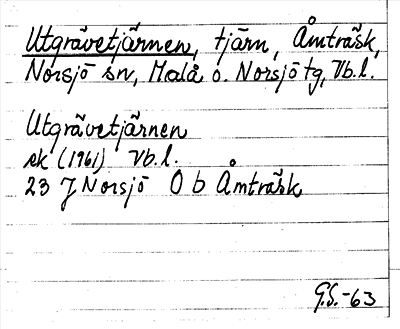 Utgrävetjärnen, tjärn, Åmträsk,
Norsjö sn, Malå o. Norsjö tg, Vb.l.
Utgrävetjärnen
ek (1961) Vb.l.
23 J Norsjö O b Åmträsk
G.S.-63